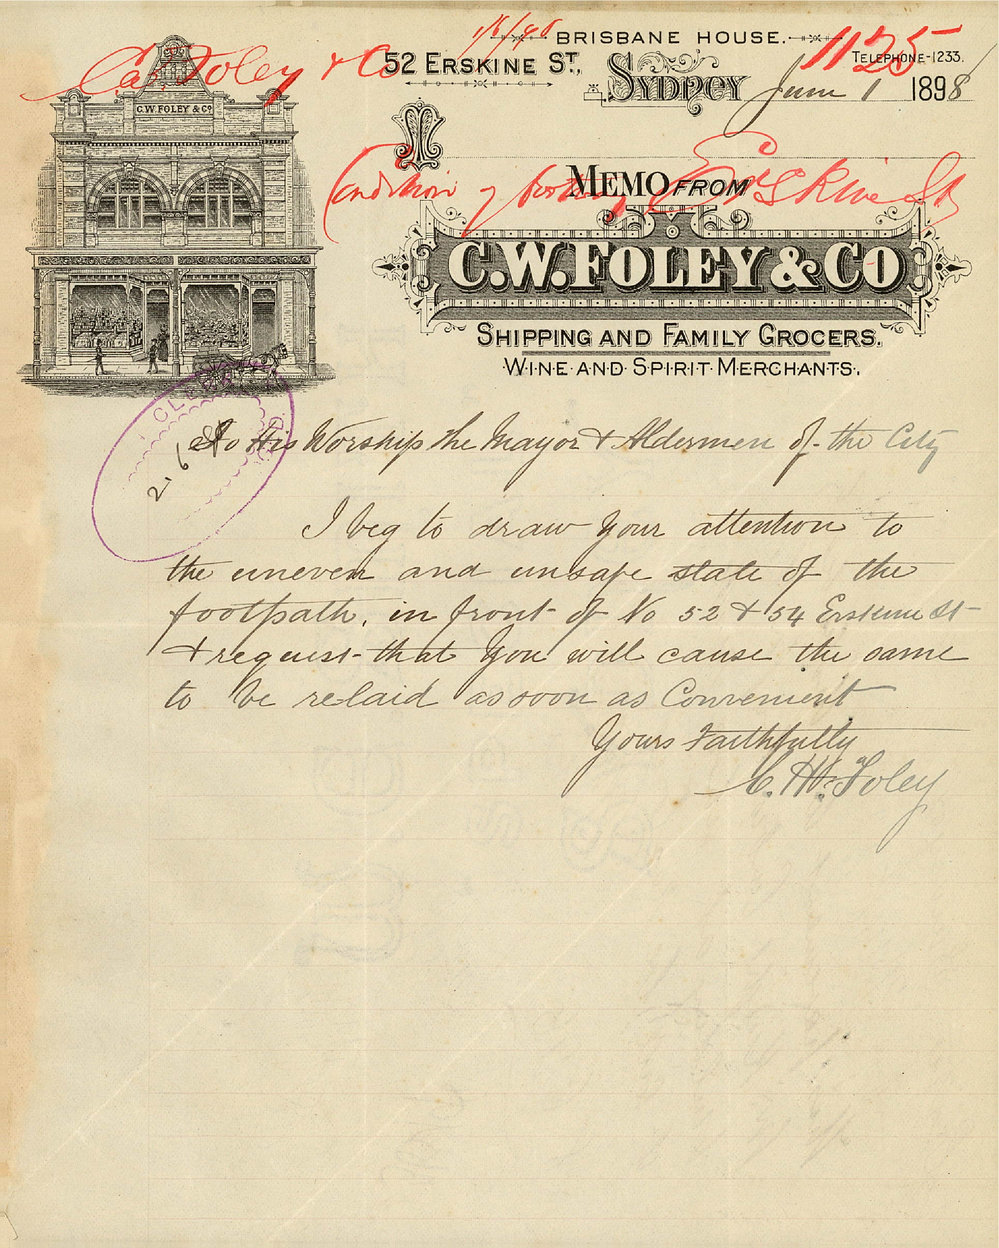 1/6/98
BRISBANE HOUSE.
1125
C.W. Foley & Co
52 ERSKINE ST,
SYDNEY
TELEPHONE-1233.
June 1 1898
C.W. FOLEY & CO
Condition of footway Erskine St
MEMO FROM
C.W. FOLEY & CO
SHIPPING AND FAMILY GROCERS.
WINE AND SPIRIT MERCHANTS.
2.6.98
To His Worship the Mayor & Aldermen of the City
I beg to draw your attention to
the uneven and unsafe state of the
footpath, in front of No 52 & 54 Erskine St
& request that you will cause the same
to be relaid as soon as Convenient
Yours Faithfully
C. W. Foley